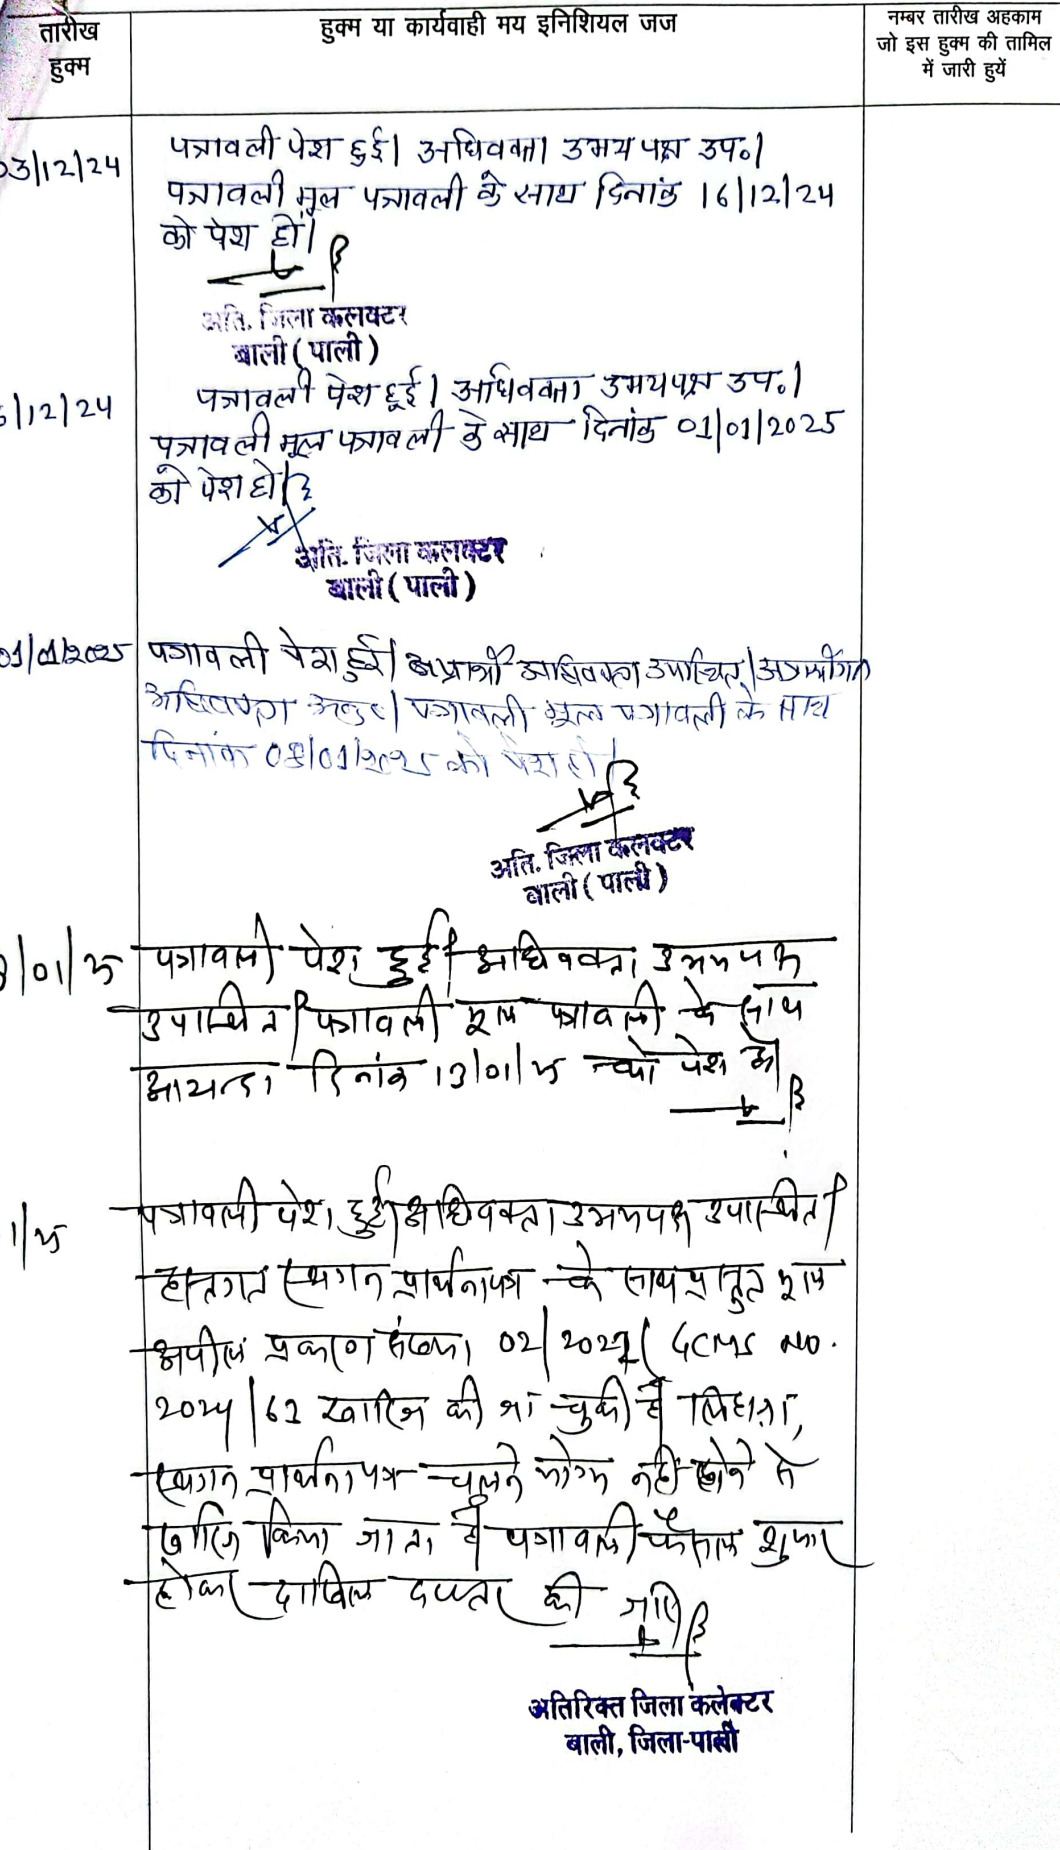 तारीख
हुक्म
हुक्म या कार्यवाही मय इनिशियल जज
नम्बर तारीख अहकाम
जो इस हुक्म की तामिल
में जारी हुयें
03/12/24
पत्रावली पेश हुई। अधिवक्ता उभय पक्ष उप०।
पत्रावली मूल पत्रावली के साथ दिनांक 16/12/24
को पेश हो।
अति. जिला कलक्टर
बाली (पाली)
6/12/24
पत्रावली पेश हुई। अधिवक्ता उभयपक्ष उप०।
पत्रावली मूल पत्रावली के साथ दिनांक 01/01/2025
को पेश हो।
अति. जिला कलक्टर
बाली (पाली)
01/01/2025
पत्रावली पेश हुई। अप्रार्थी अधिवक्ता उपस्थित।
अधिवक्ता अनु०। पत्रावली मूल पत्रावली के साथ
दिनांक 08/01/2025 को पेश हो।
अति. जिला कलक्टर
बाली (पाली)
8/01/25
पत्रावली पेश हुई। अधिवक्ता उभयपक्ष
उपस्थित। पत्रावली मूल पत्रावली के साथ
आयन्दा दिनांक 13/01/25 को पेश हो।
1/25
पत्रावली पेश हुई। अधिवक्ता उभयपक्ष उपस्थित।
हस्तगत स्थगन प्रार्थनापत्र के साथ प्रस्तुत मूल
अपील प्रकरण संख्या 02/2024 ( GCMS NO.
2024/62 खारिज की जा चुकी है। लिहाजा,
स्थगन प्रार्थना पत्र चलने योग्य नहीं होने से
खारिज किया जाता है। पत्रावली फैसल शुमार
होकर दाखिल दफ्तर की जाए।
अतिरिक्त जिला कलेक्टर
बाली, जिला-पाली